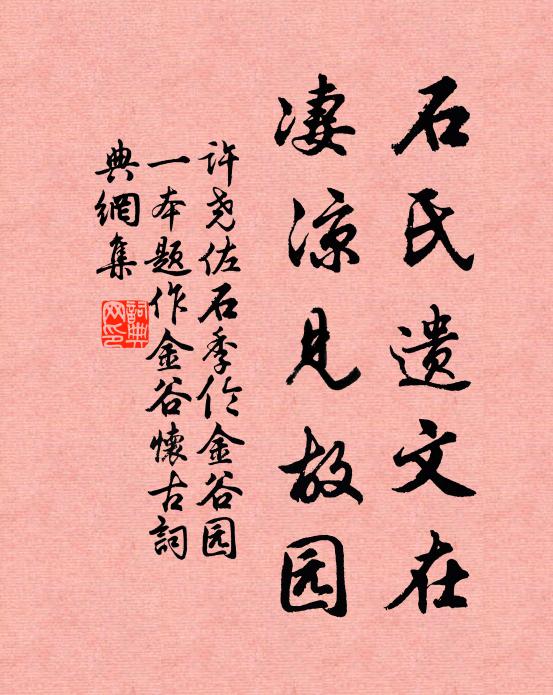 石氏遗文在
凄凉见故园
许尧佐石季伦金谷园
一本题作金谷懷古詞
典網集
詞典網印